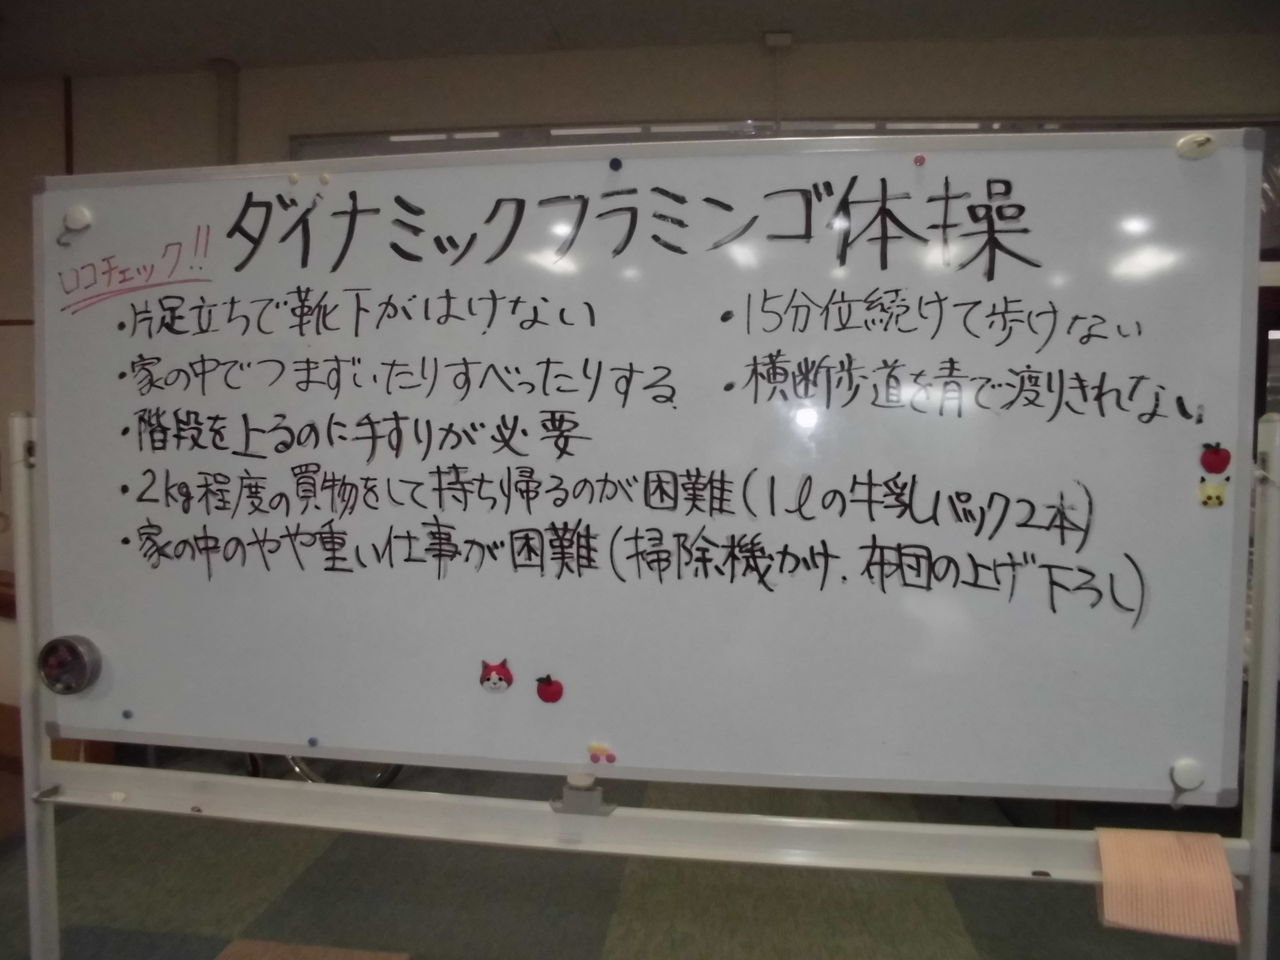 ダイナミックフラミンゴ体操
ロコチェック!!
・片足立ちで靴下がはけない
・家の中でつまずいたりすべったりする
・階段を上るのに手すりが必要
・15分位続けて歩けない
・横断歩道を青で渡りきれない
・2kg程度の買物をして持ち帰るのが困難(1ℓの牛乳パック2本)
・家の中のやや重い仕事が困難(掃除機かけ、布団の上げ下ろし)